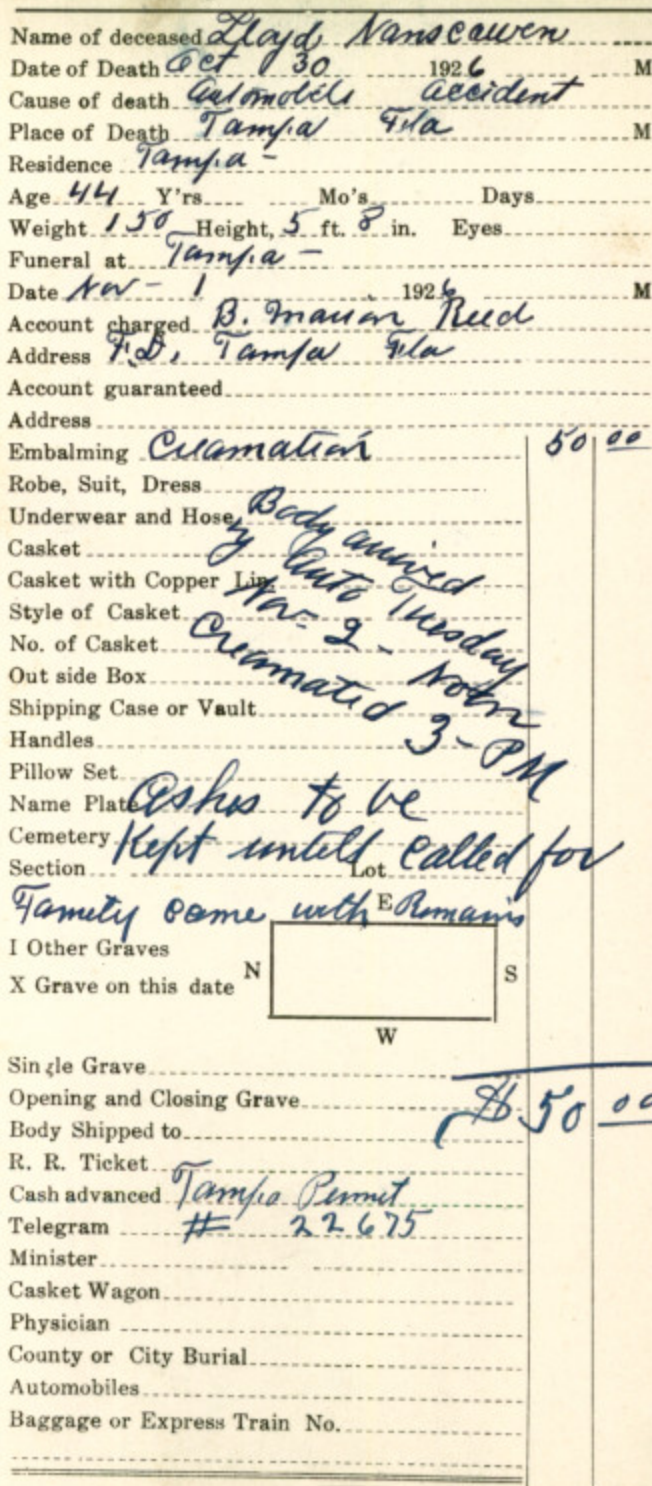 Name of deceased Lloyd Nanscawen
Date of Death Oct 30 1926 M
Cause of death Automobile accident
Place of Death Tampa Fla M
Residence Tampa -
Age 44 Y'rs Mo's Days
Weight 150 Height, 5 ft. 8 in. Eyes
Funeral at Tampa -
Date Nov - 1 1926 M
Account charged B. Marion Reed
Address F.D. Tampa Fla
Account guaranteed
Address
Embalming Creamation 50 00
Robe, Suit, Dress
Underwear and Hose
Casket
Casket with Copper Lin.
Style of Casket
No. of Casket
Out side Box
Shipping Case or Vault
Handles
Pillow Set
Body arrived
by Auto Tuesday
Nov. 2 - Noon
Creamated 3 - PM
Name Plate Ashes to be
Cemetery Kept untell called for
Section Lot
Family came with Remains
E
I Other Graves
X Grave on this date N S
W
Single Grave
Opening and Closing Grave $50 00
Body Shipped to
R. R. Ticket
Cash advanced Tampa Permit
Telegram # 22675
Minister
Casket Wagon
Physician
County or City Burial
Automobiles
Baggage or Express Train No.